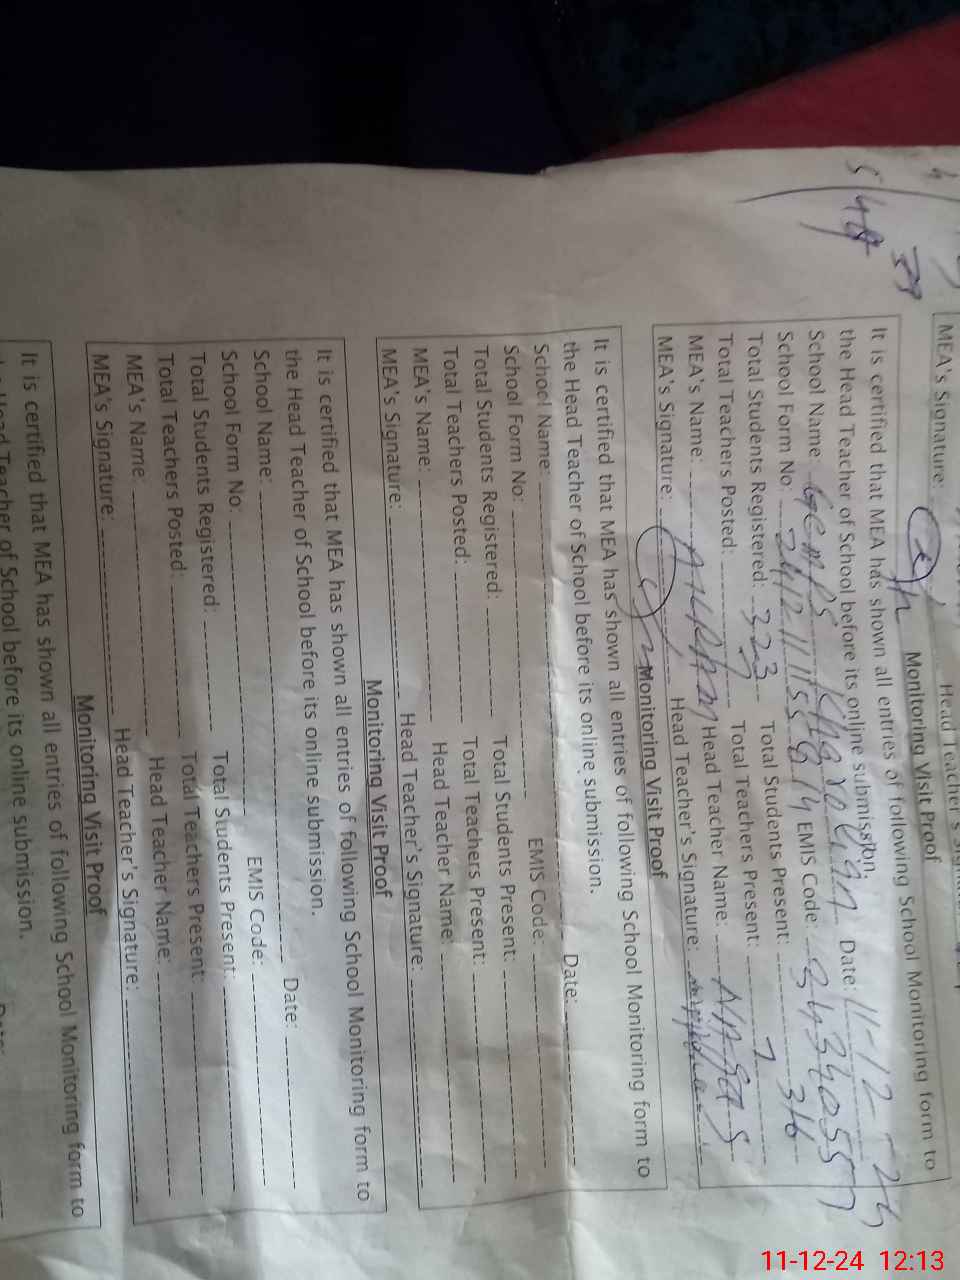 MEA's Signature: Head Teacher's
Monitoring Visit Proof
It is certified that MEA has shown all entries of following School Monitoring form to
the Head Teacher of School before its online submission.
School Name: Date: 11-12-24
School Form No: EMIS Code:
Total Students Registered: 323 Total Students Present: 316
Total Teachers Posted: 7 Total Teachers Present: 7
MEA's Name: Head Teacher Name:
MEA's Signature: Head Teacher's Signature:
Monitoring Visit Proof
It is certified that MEA has shown all entries of following School Monitoring form to
the Head Teacher of School before its online submission.
School Name: Date:
School Form No: EMIS Code:
Total Students Registered: Total Students Present:
Total Teachers Posted: Total Teachers Present:
MEA's Name: Head Teacher Name:
MEA's Signature: Head Teacher's Signature:
Monitoring Visit Proof
It is certified that MEA has shown all entries of following School Monitoring form to
the Head Teacher of School before its online submission.
School Name: Date:
School Form No: EMIS Code:
Total Students Registered: Total Students Present:
Total Teachers Posted: Total Teachers Present:
MEA's Name: Head Teacher Name:
MEA's Signature: Head Teacher's Signature:
Monitoring Visit Proof
It is certified that MEA has shown all entries of following School Monitoring form to
Head Teacher of School before its online submission.
11-12-24 12:13